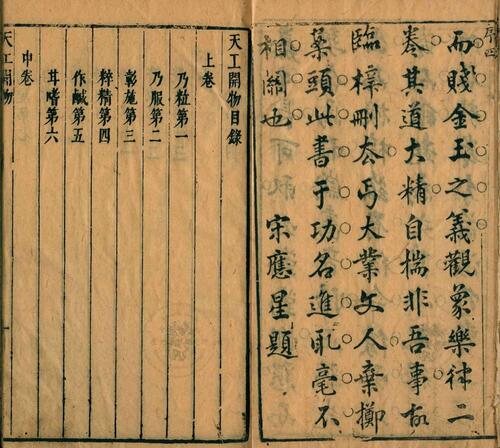 序四
而賤金玉之義觀象樂律二
卷其道大精自揣非吾事故
臨梓刪去丐大業文人棄擲
案頭此書于功名進取毫不
相關也 宋應星題
天工開物目錄
上卷
乃粒第一
乃服第二
彰施第三
粹精第四
作鹹第五
甘嗜第六
中卷
天工開物